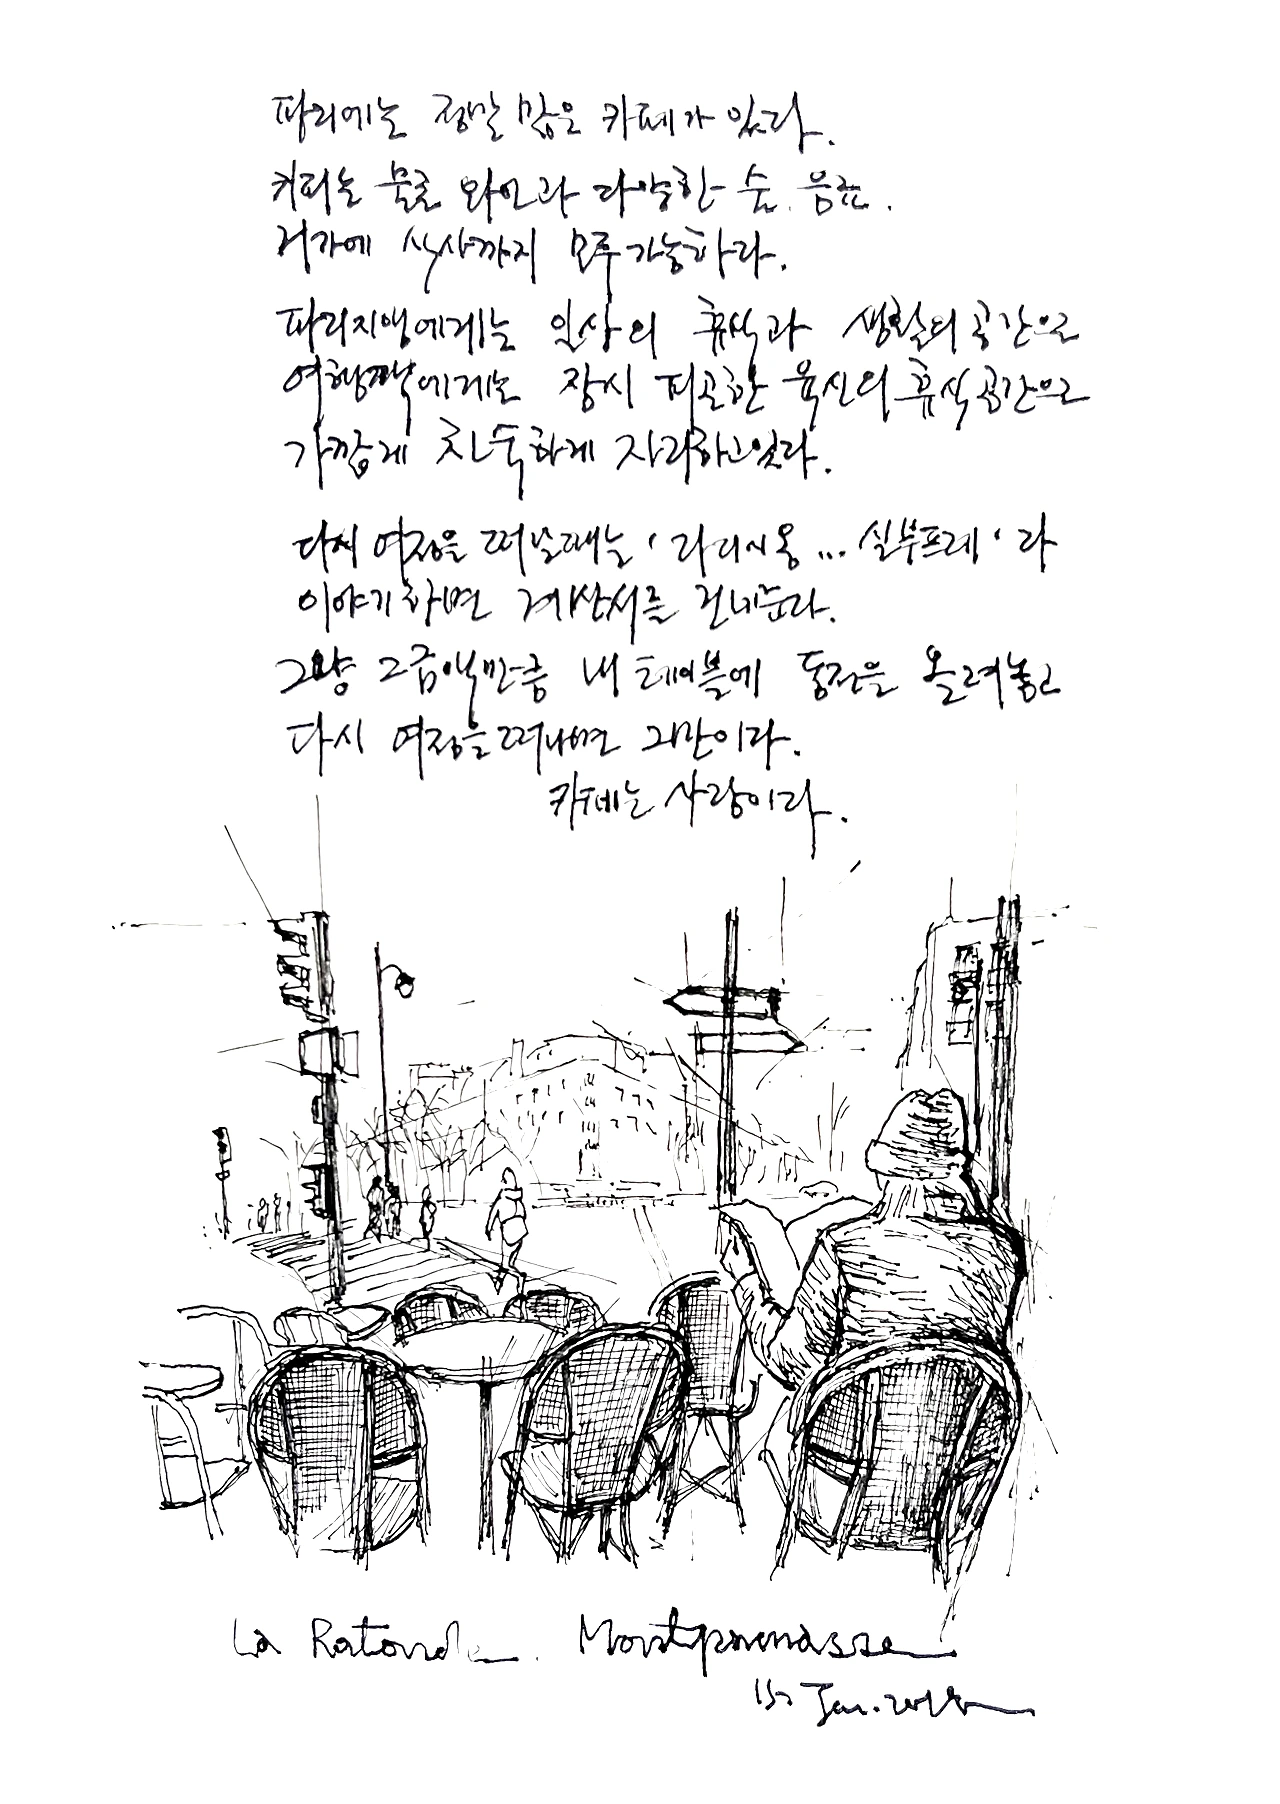 파리에는 정말 많은 카페가 있다.
커피는 물론 와인과 다양한 술. 음료.
거기에 식사까지 모두 가능하다.
파리지앵에게는 일상의 휴식과 생활의 공간으로
여행객에게는 잠시 피곤한 육신의 휴식공간으로
가깝게 친숙하게 자리하고있다.
다시 여정을 떠날때는 '라디시옹... 실부프레' 라
이야기하면 계산서를 건네준다.
그냥 그금액만큼 내 테이블에 동전을 올려놓고
다시 여정을 떠나면 그만이다.
카페는 사랑이다.
La Rotonde. Montparnasse
Jan.